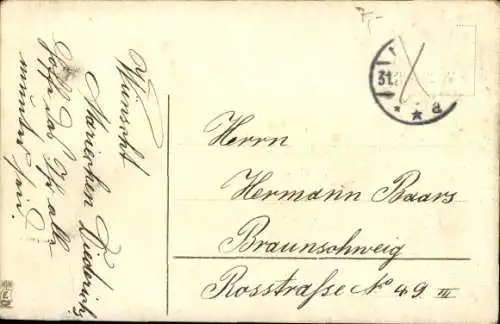 Wünscht
Mariechen Diederichs
Hoffe das Ihr alle
munter seid.
31.
* * a
Herrn
Hermann Baars
Braunschweig
Rosstraße No 49 III